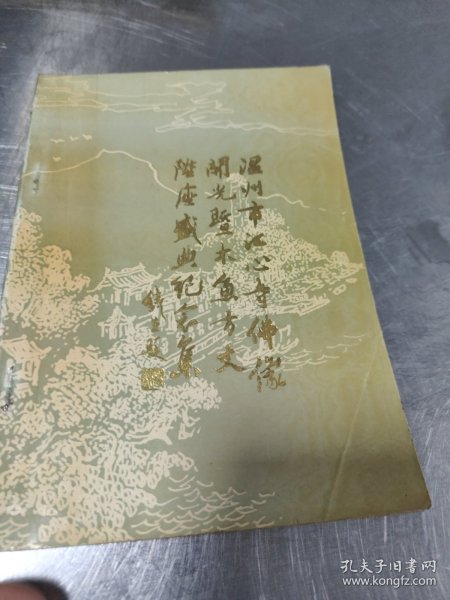 温州市江心寺佛像
開光暨木鱼方丈
陞座盛典记念集
题
孔夫子旧书网
www.kongfz.com